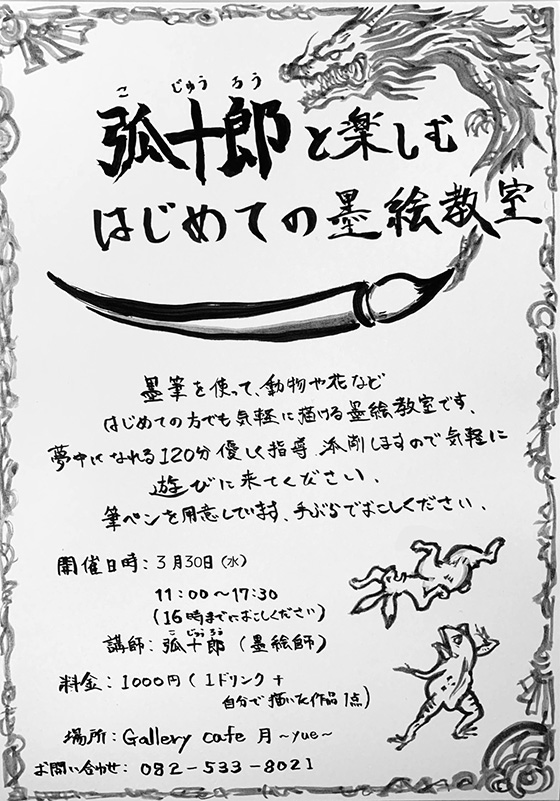 こ じゅう ろう
弧十郎と楽しむ
はじめての墨絵教室
墨筆を使って、動物や花など
はじめての方でも気軽に描ける墨絵教室です、
夢中になれる120分優しく指導、添削しますので気軽に
遊びに来てください、
筆ペンを用意しています、手ぶらでおこしください、
開催日時:3月30日(水)
11:00〜17:30
(16時までにおこしください)
こ じゅうろう
講師:弧十郎(墨絵師)
料金:1000円(1ドリンク+
自分で描いた作品1点)
場所:Gallery cafe 月〜yue〜
お問い合わせ:082-533-8021